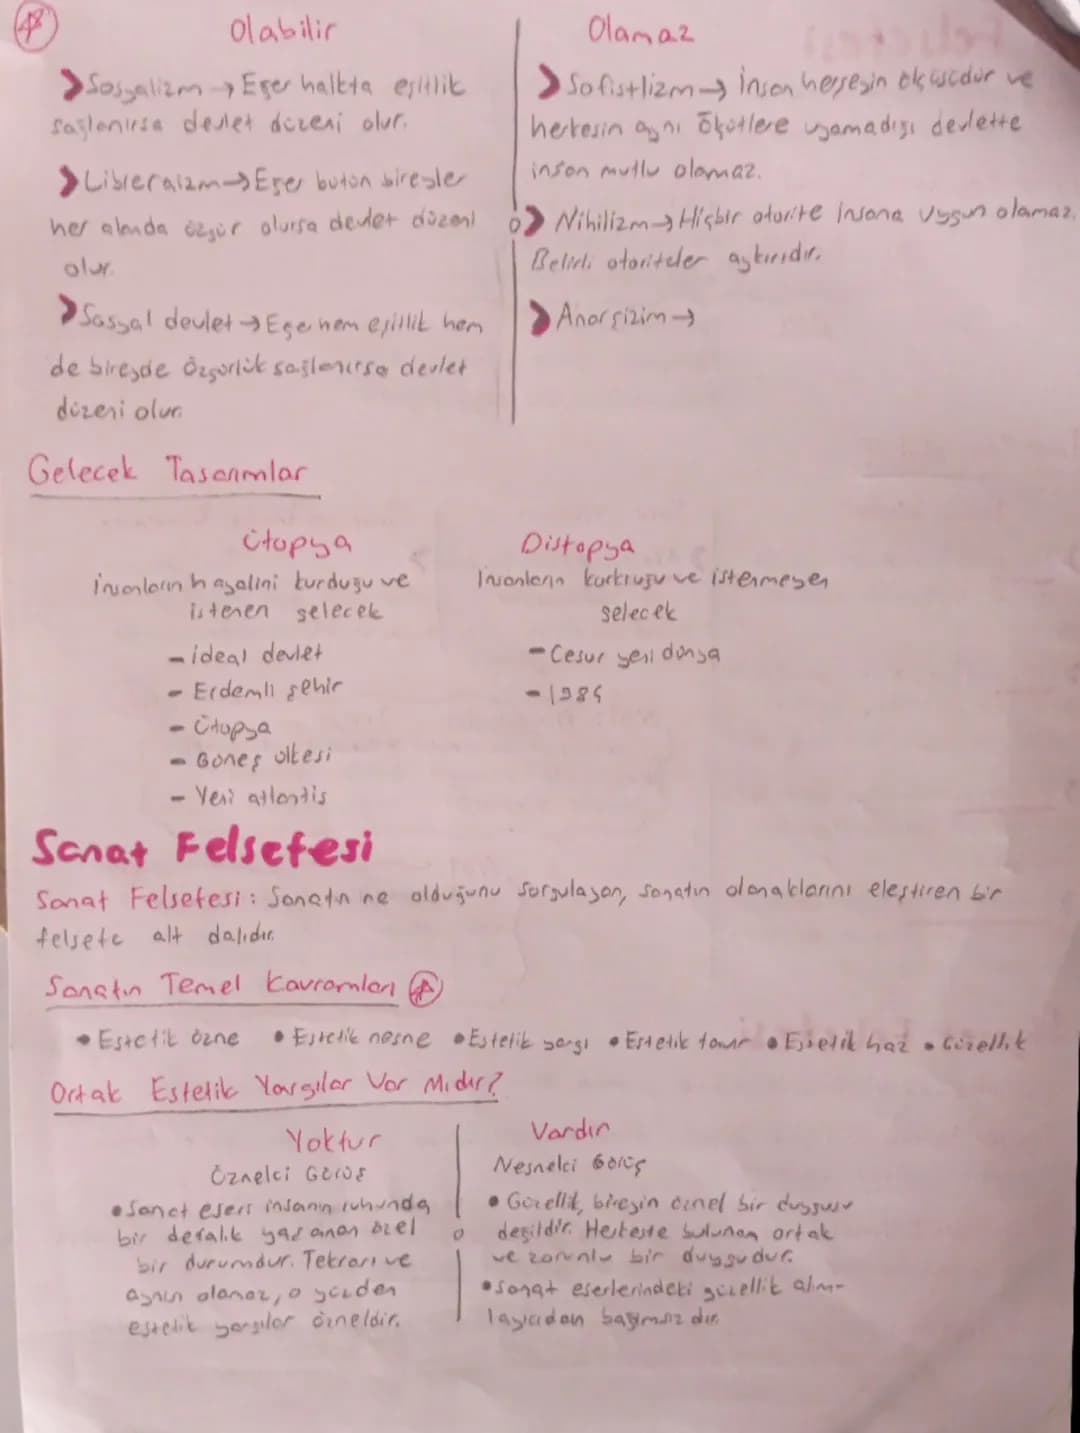 Olabilir
Sosyalizm → Eğer halkta eşitlik
sağlanırsa devlet düzeni olur.
Liberalizm → Eğer bütün bireyler
her alanda özgür olursa devlet düzeni
olur.
Sosyal devlet → Eğe hem eşitlik hem
de bireyde özgürlük sağlanırsa devlet
düzeni olur.
Olamaz
Sofistlizm → İnsan herşeyin ölçüsüdür ve
herkesin aynı ölçütlere uyamadığı devlette
insan mutlu olamaz.
Nihilizm → Hiçbir otorite insana uygun olamaz.
Belirli otoriteler aykırıdır.
Anarşizim →
Gelecek Tasarımlar
Ütopya
İnsanların hayalini kurduğu ve
istenen gelecek
- ideal devlet
- Erdemli şehir
- Ütopya
- Güneş ülkesi
- Yeni atlantis
Distopya
İnsanların korktuğu ve istenmeyen
gelecek
- Cesur yeni dünya
- 1984
Sanat Felsefesi
Sanat Felsefesi: Sanatın ne olduğunu sorgulayan, sanatın olanaklarını eleştiren bir
felsefe alt dalıdır.
Sanatın Temel Kavramları
• Estetik özne • Estetik nesne • Estetik yargı • Estetik tavır • Estetik haz • Güzellik
Ortak Estetik Yargılar Var Mıdır?
Yoktur
Öznelci Görüş
• Sanat eseri insanın ruhunda
bir defalık yaşanan özel
bir durumdur. Tekrarı ve
aynısı olamaz, o yüzden
estetik yargılar özneldir.
Vardır
Nesnelci Görüş
• Güzellik, bireyin öznel bir duygusu
değildir. Herkeste bulunan ortak
ve zorunlu bir duygudur.
• Sanat eserlerindeki güzellik alım-
layıcıdan bağımsızdır.